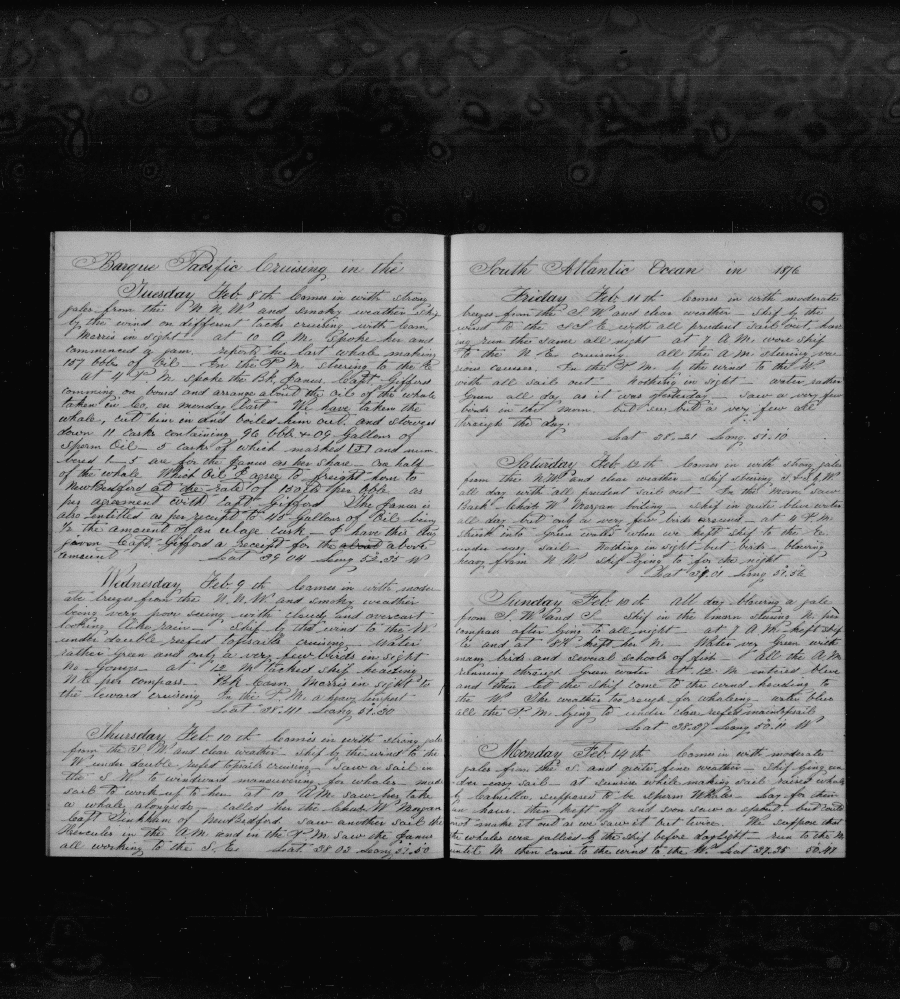 Barque Pacific Cruising in the
Tuesday Feb 8th Comes in with strong
gales from the N.N.W and smoky weather Ship
by the wind on different tacks cruising with Cam
Morris in sight at 10 A.M. Spoke her and
commenced a gam. reports her last whale making
157 bbls of Oil - In the P.M. stering to the E
at 4 P.M. Spoke the Bk Janus, Capt. Gifford
comming on board and arange about the oil of the whale
taken in Co, on monday last We have taken the
whale, cut him in and boiled him out, and stowed
down 11 casks containing 96 bbls & 09 Gallons of
Sperm Oil - 5 casks of which marked and num
bered 1-5 are for the Janus as her share - One half
of the whale Which Oil I agree to freight hom to
New Bedford at the rate of per bbl as
per agrament with Capt Gifford The Janus is
also entitled as per receipt to Gallons of Oil being
to the amount of an cask - I have this day
given Capt. Gifford a receipt for the about above
amount Lat 39.04 Long 52.35 W
Wednesday Feb 9th Comes in with moder
ate brezes from the N.N.W. and smoky weather
being very poor seeing with clouds and overcast
looking like rain - Ship by the wind to the W
under double reefed topsails cruising Water
rather Gran and only a very few birds in sight
No Gonys - at 12 M tacked Ship heading
N.E per compass - Bk Cam Morris in sight to
the leward cruising In the P.M.
Lat 38.41 Long 51.30
Thursday Feb 10th Comes in with strong gales
from the S W and clear weather - ship by the wind to the
W under double reefed topsails cruising - saw a sail in
the S.W. to windward maneuvering for whales made
sail to work up to her at 10 A.M. saw her take
a whale alongside - called her the Chas W. Morgan
Capt Tinkham of New Bedford saw another sail the
Hercules in the A.M. and in the P.M. saw the Janus
all working to the S.E. Lat. 38 02 Long 51.50
South Atlantic Ocean in 1876
Friday Feb 11th Comes in with moderate
brezes from the S.W and clear weather - ship by the
wind to the SSE with all prudent sail out, hav
ing run the same all night at 7 A.M. wore ship
to the N E cruising all this A M stering var
ious courses. In the P M by the wind to the W
with all sails out nothing in sight - water rather
Green all day as it was yesterday - saw a very few
birds in the morn but see but a very few all
through the day.
Lat 38.21 Long 51.10
Saturday Feb 12th Comes in with strong gales
from this NW and clear weather - ship stering S & S by W
all day with all prudent sail out - In the morn saw
Bark Chas W Morgan boiling - ship in quite blue water
all day but only a very few birds around - at 4 P.M.
struck into Green water when we kept ship to the E.
under easy sail - Nothing in sight but birds blowing
heavy from N W Ship lying to for the night
Lat 39.01 Long 51.56
Sunday Feb 13th All day blowing a gale
from S.W and S. Ship in the morn stering N per
compass after lying to all night - at 7 A.M. kept ship
E and at kept her N. - Water very Green with
many birds and several schools of fish - All the A.M.
running through Green water at 12 M. entered blue
and then let the ship come to the wind heading to
the W. The weather to rough for whaleing water blue
all the P.M. lying to under close reefed maintopsail
Lat 38.37 Long 50.11 W
Monday Feb 14th Comes in with moderate
gales from the S. and quite fine weather - Ship lying un
der easy sail - at sunrise while making sail raised whale
supposed to be Sperm Whales - lay for them
an hour then kept off and soon saw a spout but could
not make it out as we saw it but twice. We suppose that
the whales were gallied by the ship before daylight run to the N
until M then came to the wind to the W. Lat 37.38 50.48